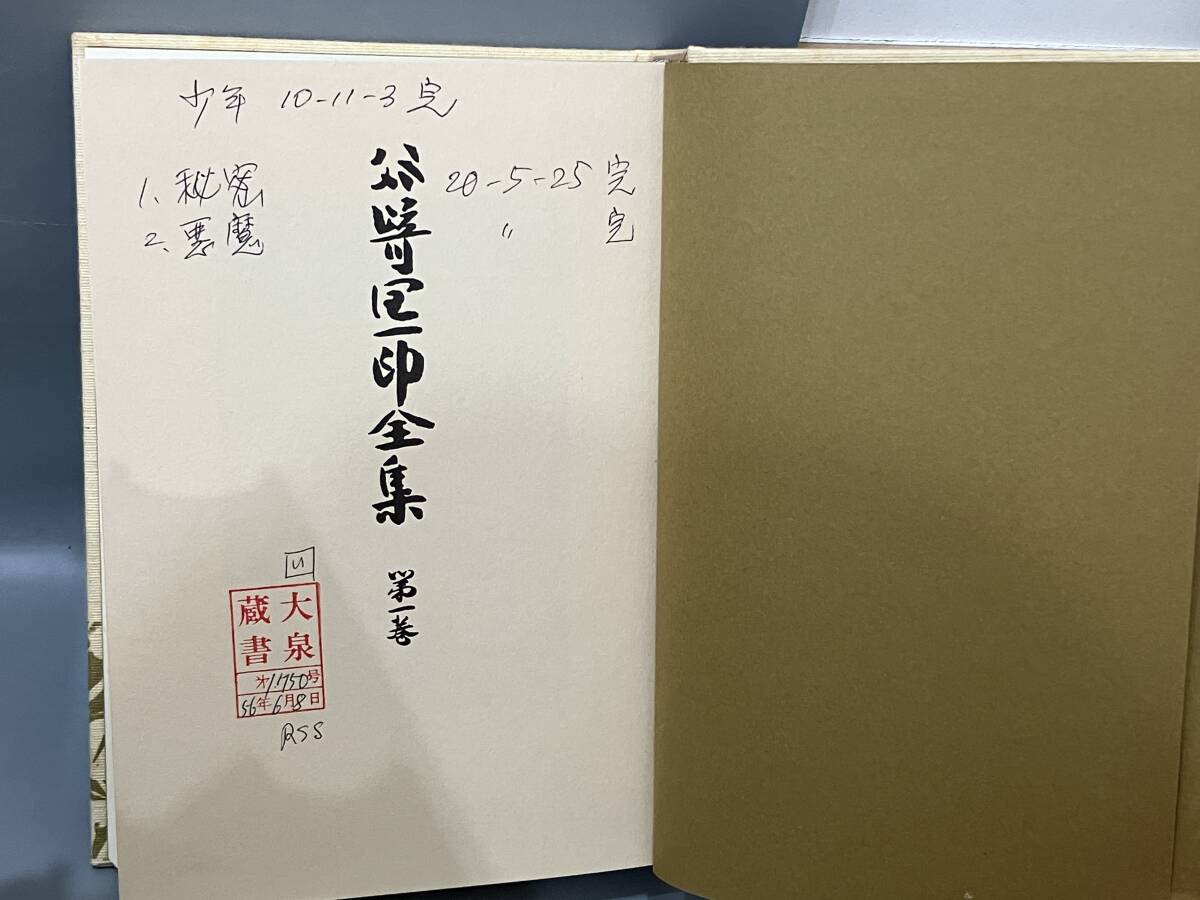 少年 10-11-3 完
1、秘密 20-5-25 完
2、悪魔 〃 完
谷崎潤一郎全集
第一巻
い
大泉
蔵書
オ1,750号
56年6月8日
RSS